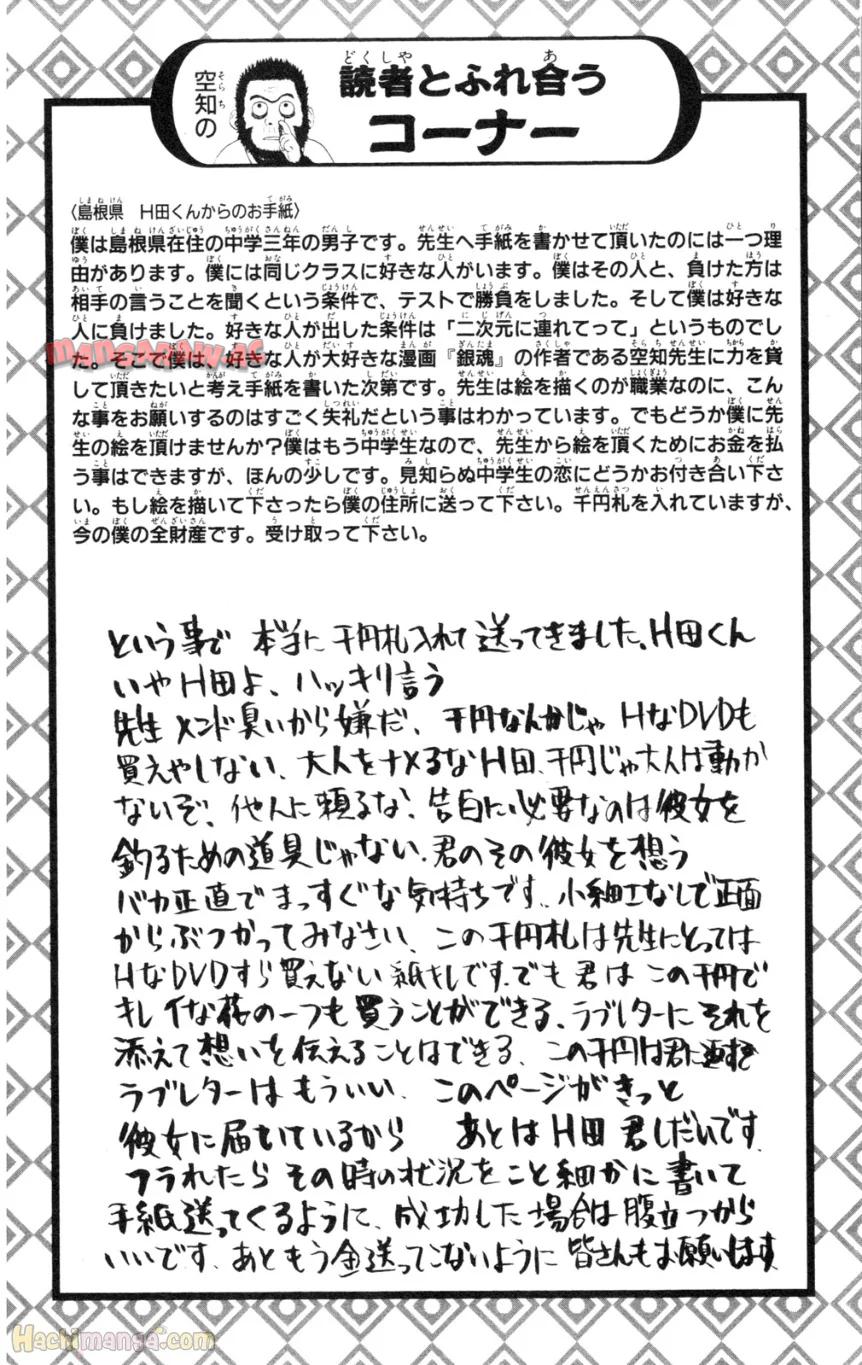 空知の
読者とふれ合う
コーナー
〈島根県 H田くんからのお手紙〉
僕は島根県在住の中学三年の男子です。先生へ手紙を書かせて頂いたのには一つ理
由があります。僕には同じクラスに好きな人がいます。僕はその人と、負けた方は
相手の言うことを聞くという条件で、テストで勝負をしました。そして僕は好きな
人に負けました。好きな人が出した条件は「二次元に連れてって」というものでし
た。そこで僕は、好きな人が大好きな漫画『銀魂』の作者である空知先生に力を貸
して頂きたいと考え手紙を書いた次第です。先生は絵を描くのが職業なのに、こん
な事をお願いするのはすごく失礼だという事はわかっています。でもどうか僕に先
生の絵を頂けませんか?僕はもう中学生なので、先生から絵を頂くためにお金を払
う事はできますが、ほんの少しです。見知らぬ中学生の恋にどうかお付き合い下さ
い。もし絵を描いて下さったら僕の住所に送って下さい。千円札を入れていますが、
今の僕の全財産です。受け取って下さい。
という事で 本当に千円札入れて送ってきました。H田くん
いやH田よ、ハッキリ言う
先生メンド臭いから嫌だ、千円なんかじゃ HなDVDも
買えやしない、大人をナメるなH田、千円じゃ大人は動か
ないぞ、他人に頼るな、告白に必要なのは彼女を
釣るための道具じゃない、君のその彼女を想う
バカ正直でまっすぐな気持ちです、小細工なしで正面
からぶつかってみなさい、この千円札は先生にとっては
HなDVDすら買えない紙キレです、でも君はこの千円で
キレイな花の一つも買うことができる、ラブレターにそれを
添えて想いを伝えることはできる、この千円は君に返す
ラブレターはもういい、このページがきっと
彼女に届いているから あとはH田君しだいです
フラれたら その時の状況をこと細かに書いて
手紙送ってくるように、成功した場合は腹立つから
いいです、あともう金送ってこないように皆さんもお願いします
mangaraw.ac
Hachimanga.com